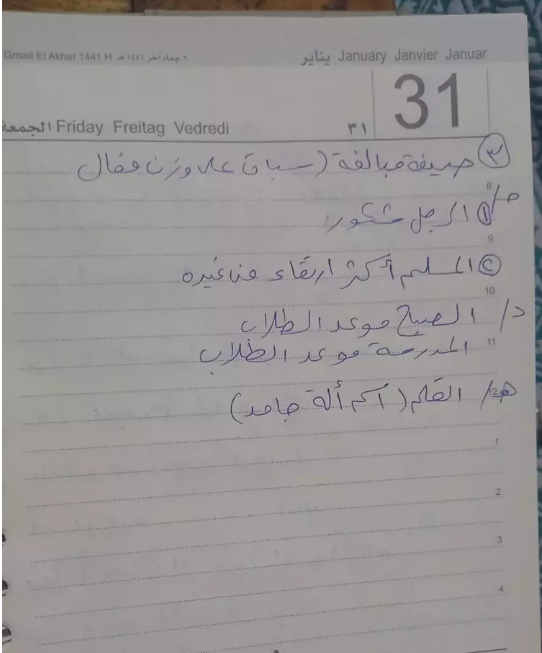 Gmad El Akhar 1441 H - ٦ جماد اخر ١٤٤١ هـ
يناير January Janvier Januar
31
٣١
الجمعة Friday Freitag Vedredi
٣ صيغة مبالغة (سباق على وزن فعال
8
ج/ ١ الرجل شكور
9
٢ المسلم أكثر ارتقاء من غيره
10
د/ الصبح موعد الطلاب
11
المدرسة موعد الطلاب
12
هـ/ القلم (اسم ألة جامد)
1
2
3
4